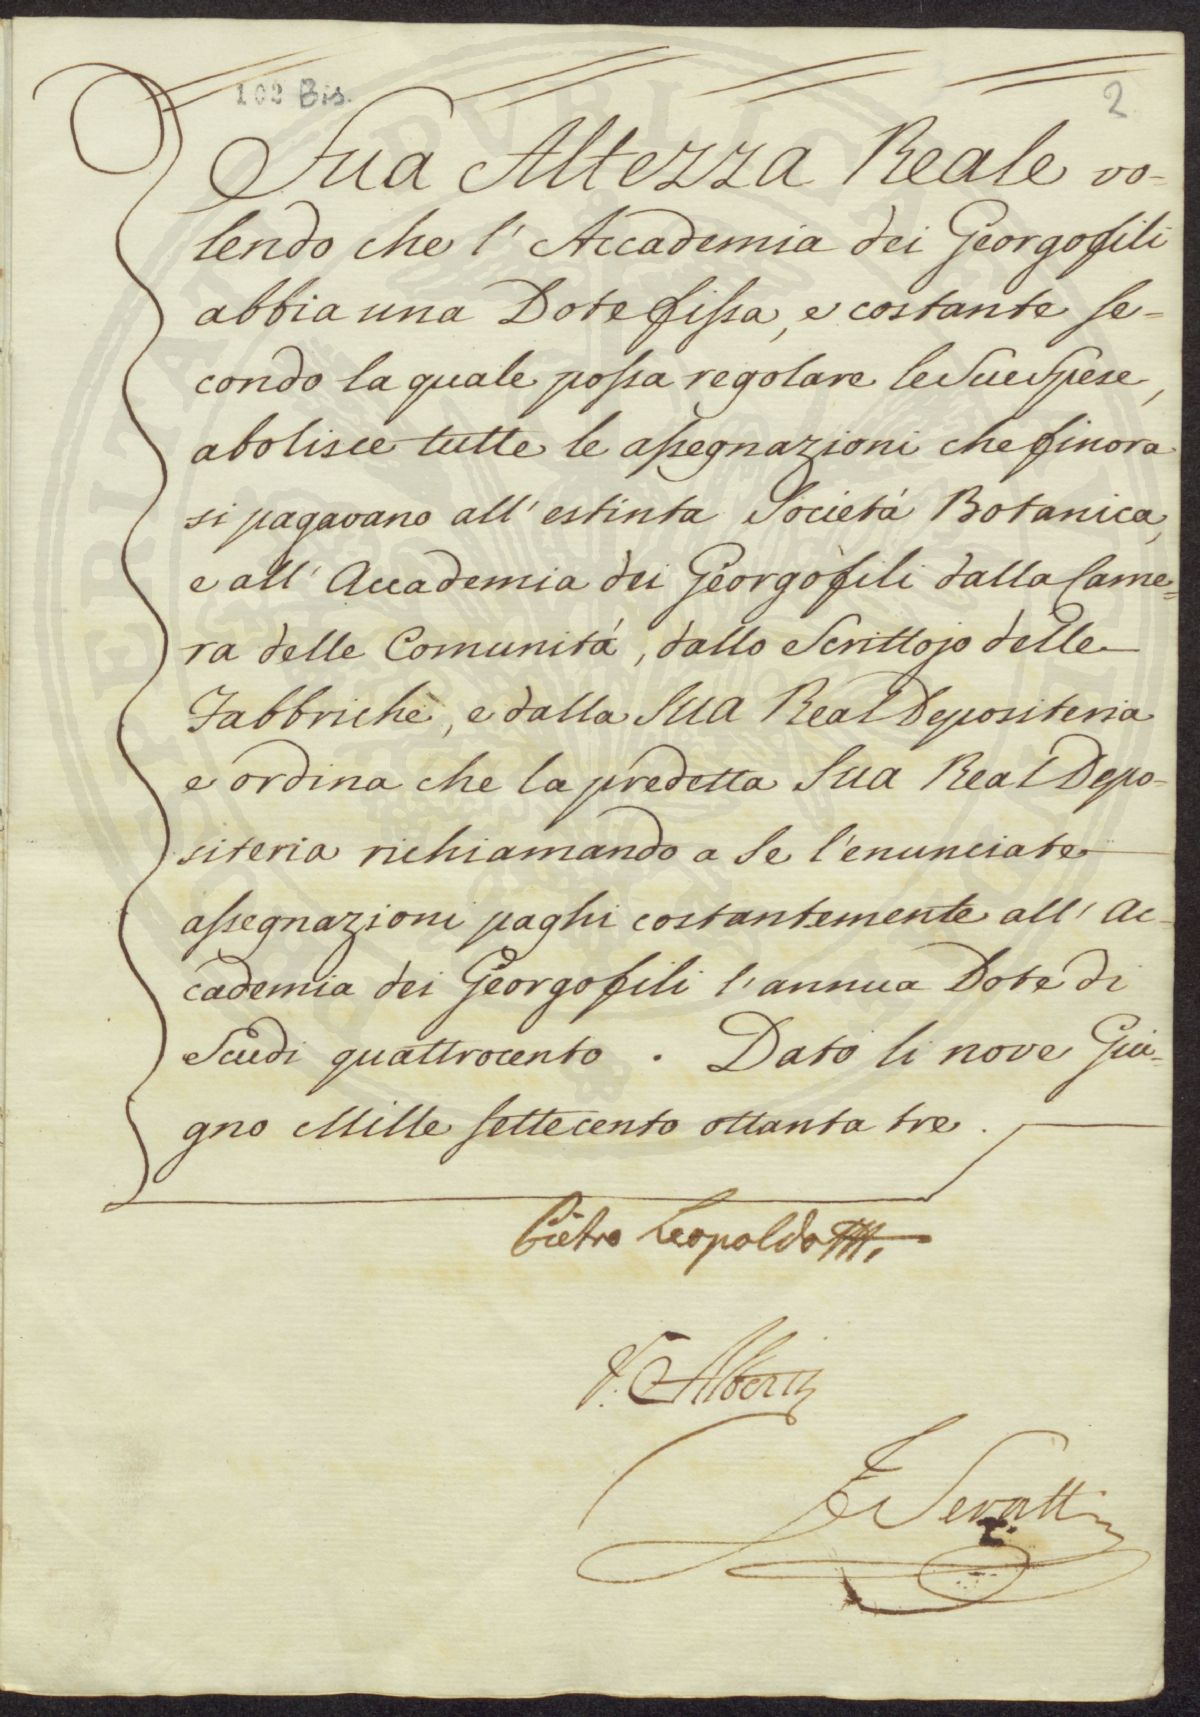 102 Bis.
2
Sua Altezza Reale vo-
lendo che l' Accademia dei Georgofili
abbia una Dote fissa, e costante se-
condo la quale possa regolare le Sue Spese,
abolisce tutte le assegnazioni che finora
si pagavano all' estinta Societá Botanica,
e all' Accademia dei Georgofili dalla Came-
ra delle Comunitá, dallo Scrittojo delle
Fabbriche, e dalla Sua Real Depositeria
e ordina che la predetta Sua Real Depo-
siteria richiamando a se l'enunciate
assegnazioni paghi costantemente all' Ac-
cademia dei Georgofili l'annua Dote di
Scudi quattrocento. Dato li nove Giu-
gno Mille settecento ottanta tre.
Pietro Leopoldo
V. Alberti